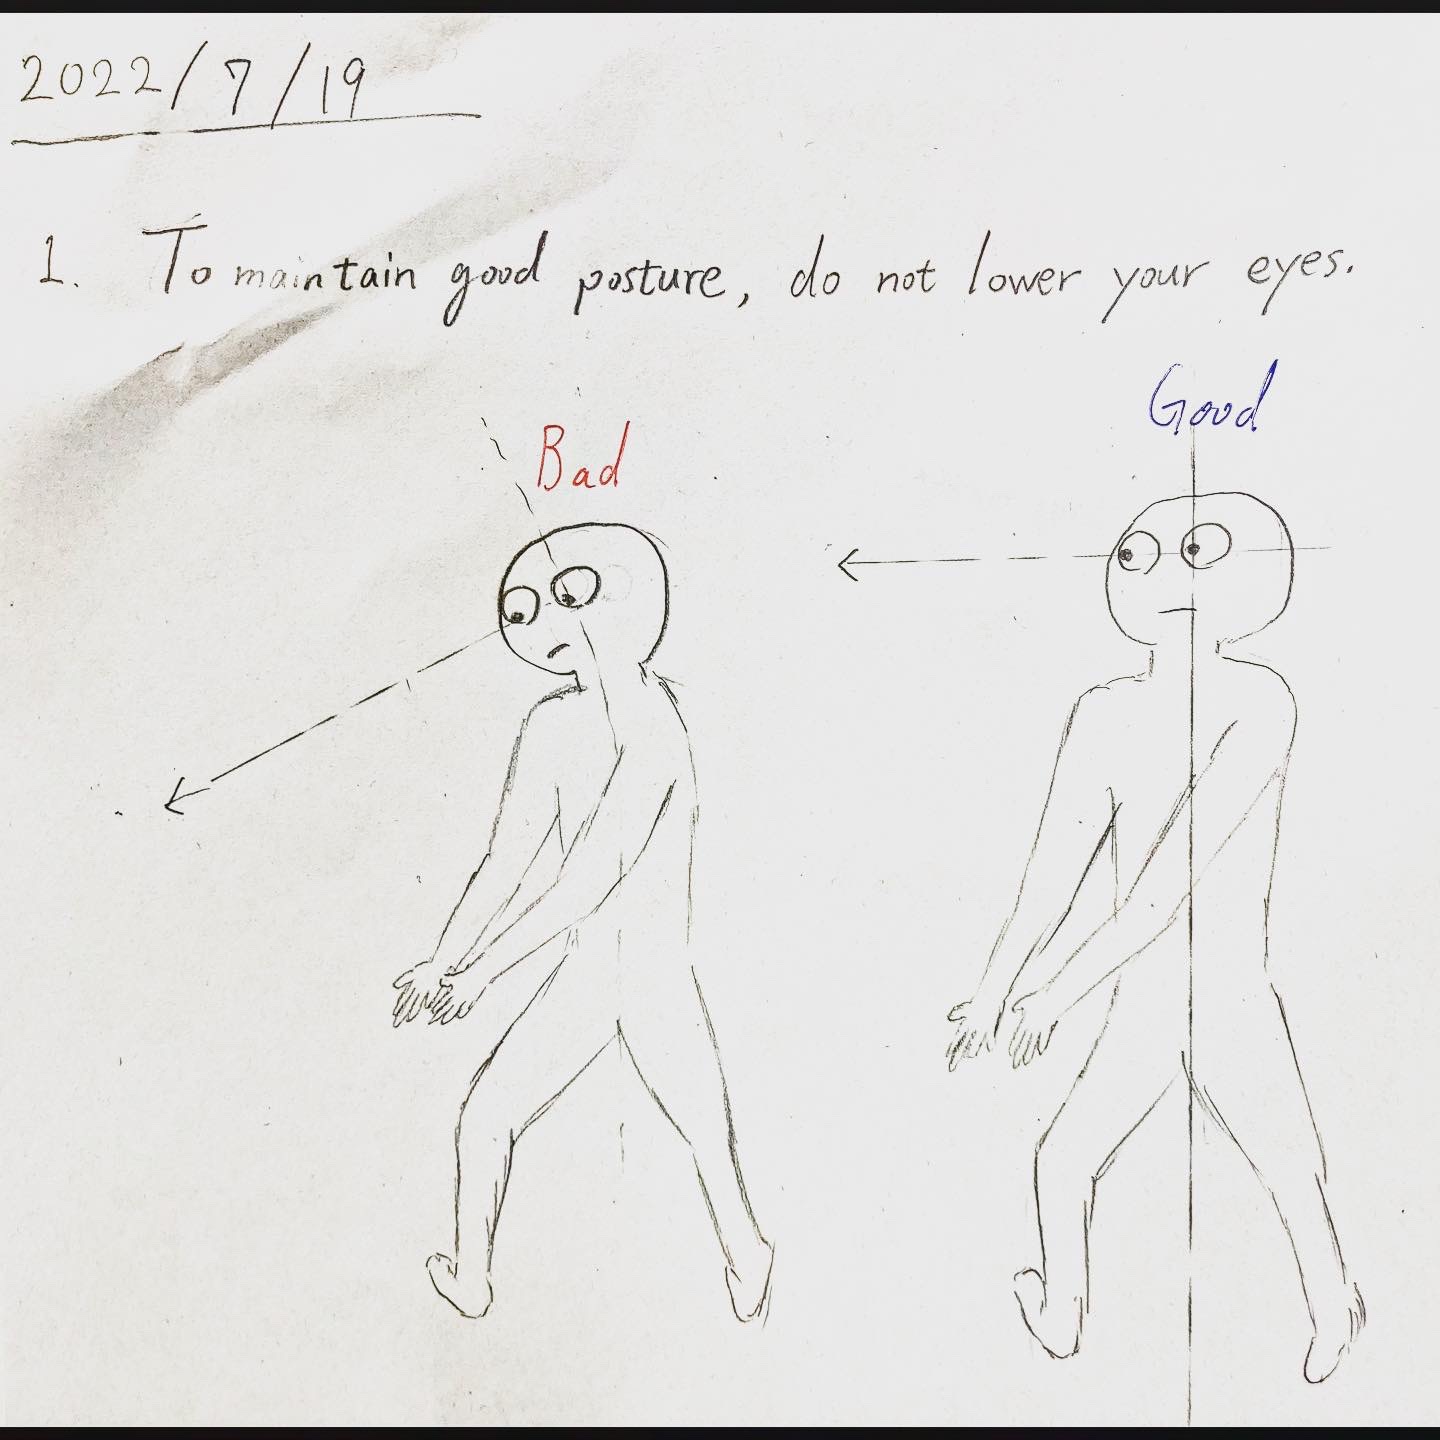 2022/7/19
1. To maintain good posture, do not lower your eyes.
Good
Bad